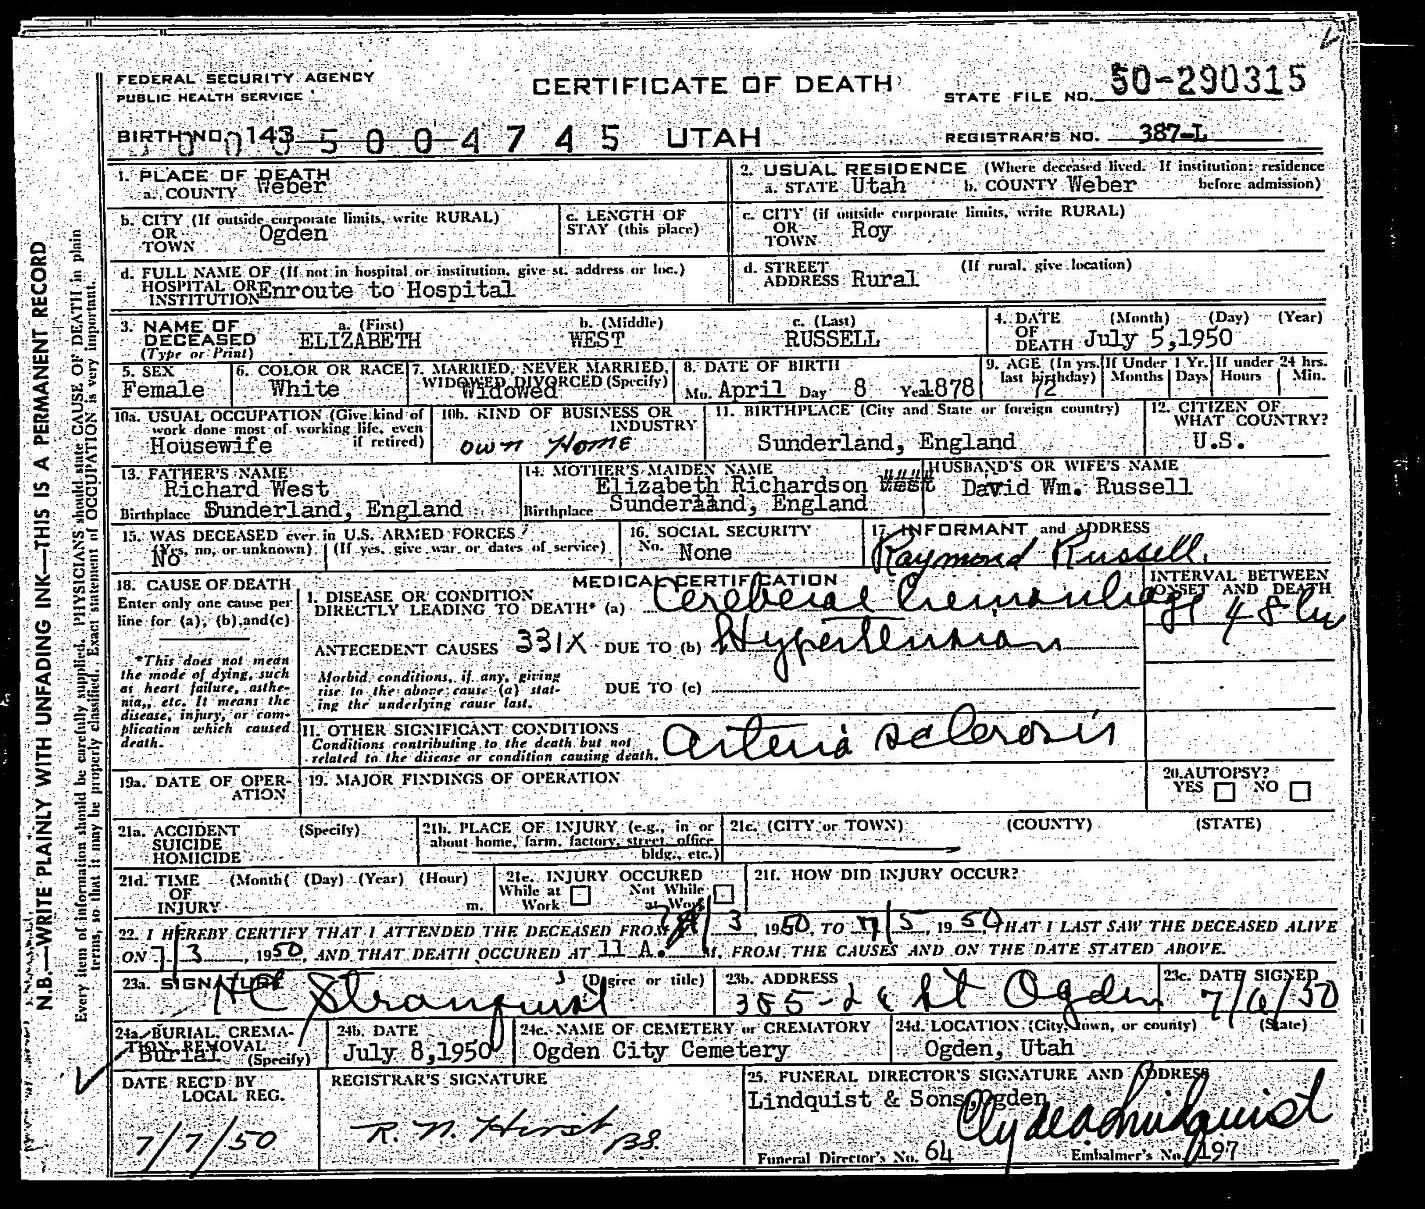 FEDERAL SECURITY AGENCY
PUBLIC HEALTH SERVICE
CERTIFICATE OF DEATH
STATE FILE NO. 50-290315
BIRTH NO. 143 5004745 UTAH
REGISTRAR'S NO. 387-L
1. PLACE OF DEATH
a. COUNTY Weber
2. USUAL RESIDENCE (Where deceased lived. If institution: residence before admission)
a. STATE Utah b. COUNTY Weber
b. CITY (If outside corporate limits, write RURAL)
OR TOWN Ogden
c. LENGTH OF STAY (this place)
c. CITY (if outside corporate limits, write RURAL)
OR TOWN Roy
d. FULL NAME OF (If not in hospital or institution, give st. address or loc.)
HOSPITAL OR INSTITUTION Enroute to Hospital
d. STREET ADDRESS Rural (If rural, give location)
3. NAME OF DECEASED (Type or Print)
a. (First) b. (Middle) c. (Last)
ELIZABETH WEST RUSSELL
4. DATE OF DEATH (Month) (Day) (Year)
July 5,1950
5. SEX
Female
6. COLOR OR RACE
White
7. MARRIED, NEVER MARRIED, WIDOWED DIVORCED (Specify)
Widowed
8. DATE OF BIRTH
Mo. April Day 8 Yr. 1878
9. AGE (In yrs. last birthday) If Under 1 Yr. Months Days If under 24 hrs. Hours Min.
72
10a. USUAL OCCUPATION (Give kind of work done most of working life, even if retired)
Housewife
10b. KIND OF BUSINESS OR INDUSTRY
own Home
11. BIRTHPLACE (City and State or foreign country)
Sunderland, England
12. CITIZEN OF WHAT COUNTRY?
U.S.
13. FATHER'S NAME
Richard West
Birthplace Sunderland, England
14. MOTHER'S MAIDEN NAME
Elizabeth Richardson
Birthplace Sunderland, England
HUSBAND'S OR WIFE'S NAME
David Wm. Russell
15. WAS DECEASED ever in U.S. ARMED FORCES?
(Yes, no, or unknown) (If yes, give war or dates of service)
No
16. SOCIAL SECURITY
No. None
17. INFORMANT and ADDRESS
Raymond Russell.
18. CAUSE OF DEATH
Enter only one cause per line for (a), (b), and (c)
MEDICAL CERTIFICATION
INTERVAL BETWEEN ONSET AND DEATH
I. DISEASE OR CONDITION
DIRECTLY LEADING TO DEATH* (a) Cerebral hemorrhage 48 hr
ANTECEDENT CAUSES 331X DUE TO (b) Hypertension
*This does not mean the mode of dying, such as heart failure, asthenia,, etc. It means the disease, injury, or complication which caused death.
Morbid conditions, if any, giving rise to the above cause (a) stating the underlying cause last.
DUE TO (c)
II. OTHER SIGNIFICANT CONDITIONS
Conditions contributing to the death but not related to the disease or condition causing death.
Arteria sclerosis
19a. DATE OF OPERATION
19. MAJOR FINDINGS OF OPERATION
20. AUTOPSY?
YES NO
21a. ACCIDENT SUICIDE HOMICIDE (Specify)
21b. PLACE OF INJURY (e.g., in or about home, farm, factory, street, office bldg., etc.)
21c. (CITY or TOWN) (COUNTY) (STATE)
21d. TIME OF INJURY (Month( (Day) (Year) (Hour) m.
21e. INJURY OCCURED
While at Work Not While at Work
21f. HOW DID INJURY OCCUR?
22. I HEREBY CERTIFY THAT I ATTENDED THE DECEASED FROM 7/3, 1950, TO 7/5, 1950 THAT I LAST SAW THE DECEASED ALIVE
ON 7/3, 1950, AND THAT DEATH OCCURED AT 11 A. M. FROM THE CAUSES AND ON THE DATE STATED ABOVE.
23a. SIGNATURE (Degree or title)
HC Stranquist
23b. ADDRESS
385-24 St Ogden
23c. DATE SIGNED
7/6/50
24a. BURIAL, CREMATION, REMOVAL (Specify)
Burial
24b. DATE
July 8,1950
24c. NAME OF CEMETERY or CREMATORY
Ogden City Cemetery
24d. LOCATION (City, town, or county) (State)
Ogden, Utah
DATE REC'D BY LOCAL REG.
7/7/50
REGISTRAR'S SIGNATURE
R. N. Hirst BS.
25. FUNERAL DIRECTOR'S SIGNATURE AND ADDRESS
Lindquist & Sons Ogden
Clyde A Lindquist
Funeral Director's No. 64 Embalmer's No. 197
N.B.—WRITE PLAINLY WITH UNFADING INK—THIS IS A PERMANENT RECORD
Every item of information should be carefully supplied. PHYSICIANS should state CAUSE OF DEATH in plain
terms, so that it may be properly classified. Exact statement of OCCUPATION is very important.